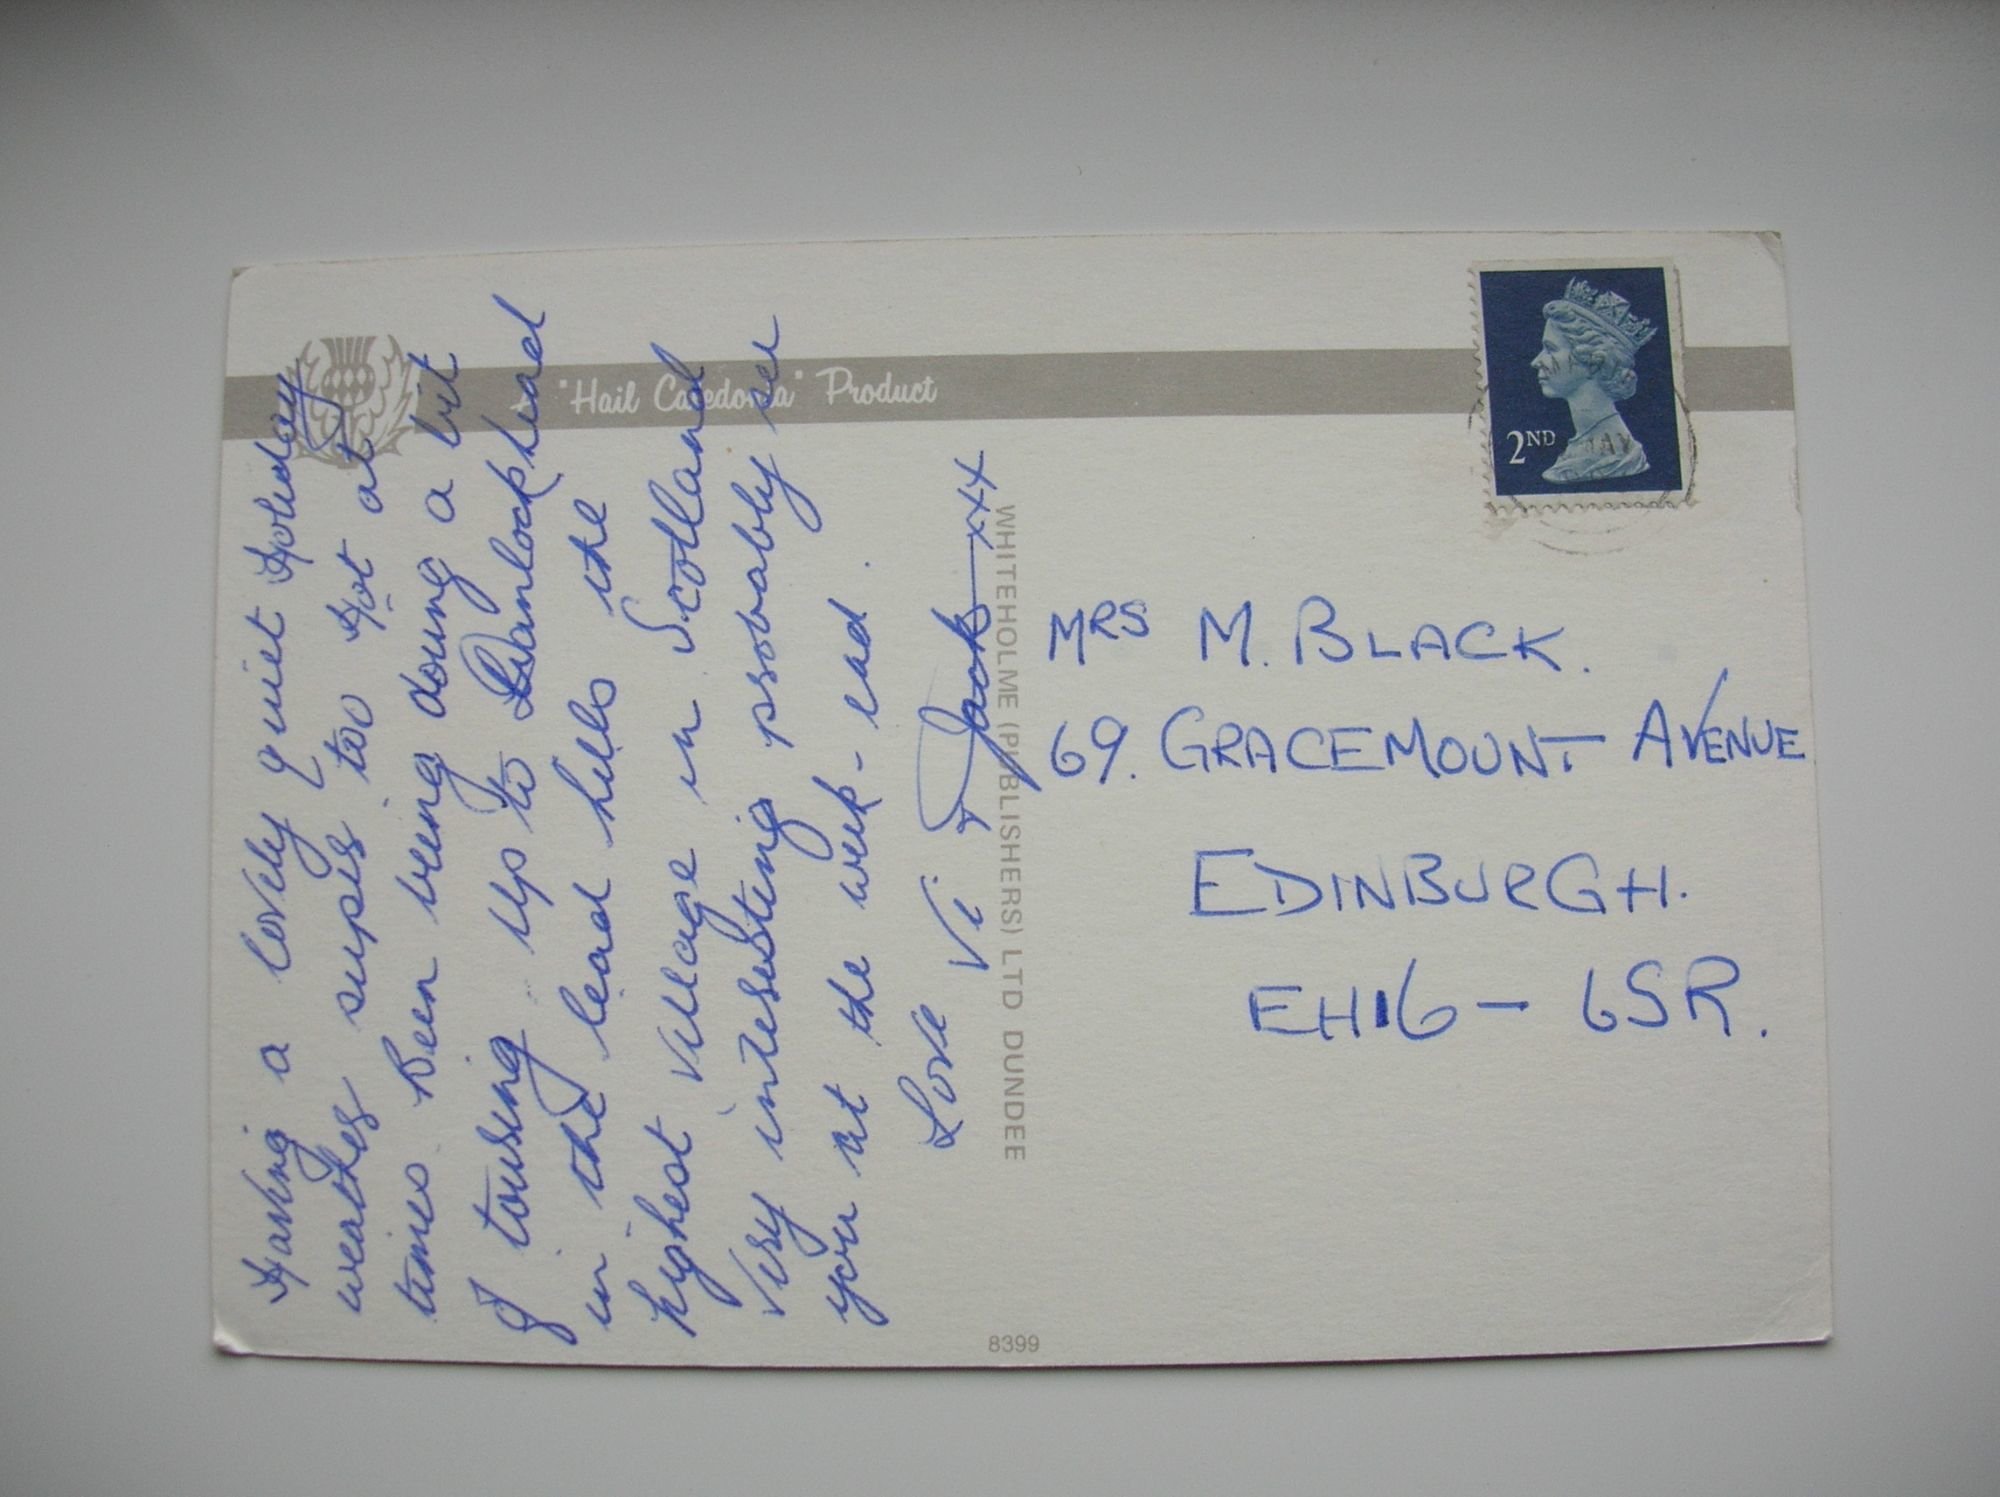 A "Hail Caledonia" Product
Having a lovely quiet Holiday
weather super too Hot at
times. Been being doing a bit
of touring. Up to Wanlockhead
in the lead hills the
highest village in Scotland
Very interesting probably see
you at the week-end.
Love Vi + Jack xxx
WHITEHOLME (PUBLISHERS) LTD DUNDEE
8399
2ND
MAY
MRS M. BLACK.
69. GRACEMOUNT AVENUE
EDINBURGH.
EH16 - 6SR.